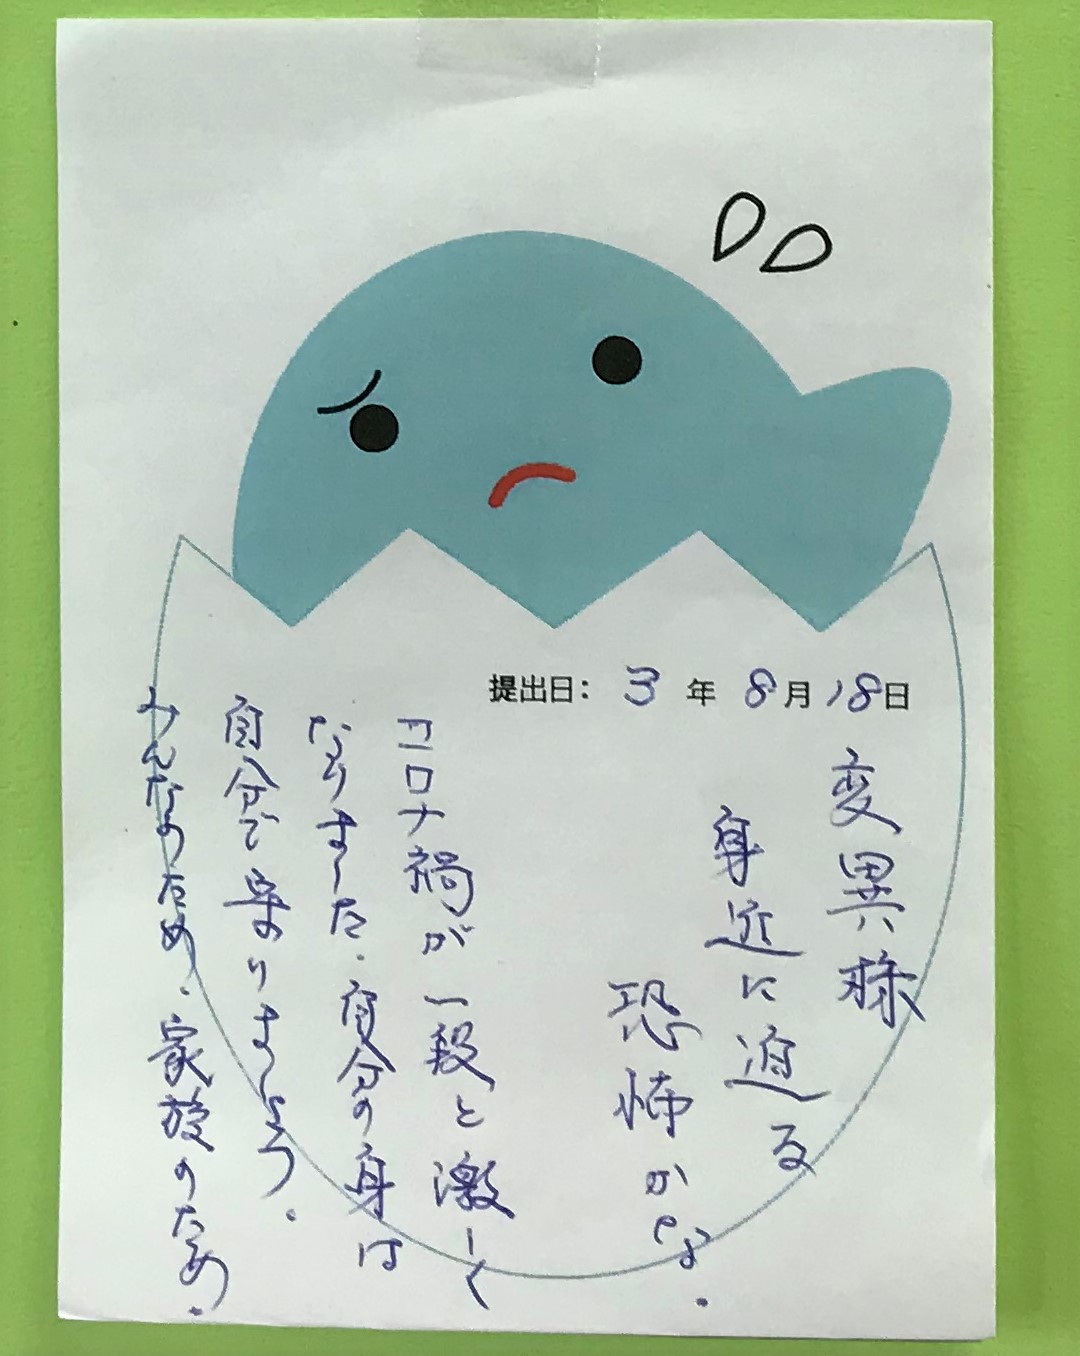 提出日： 3 年 8 月 18 日
変異様
身近に迫る
恐怖かな.
コロナ禍が一段と激しく
なりました. 自分の身は
自分で守りましょう.
みんなのため. 家族のため.